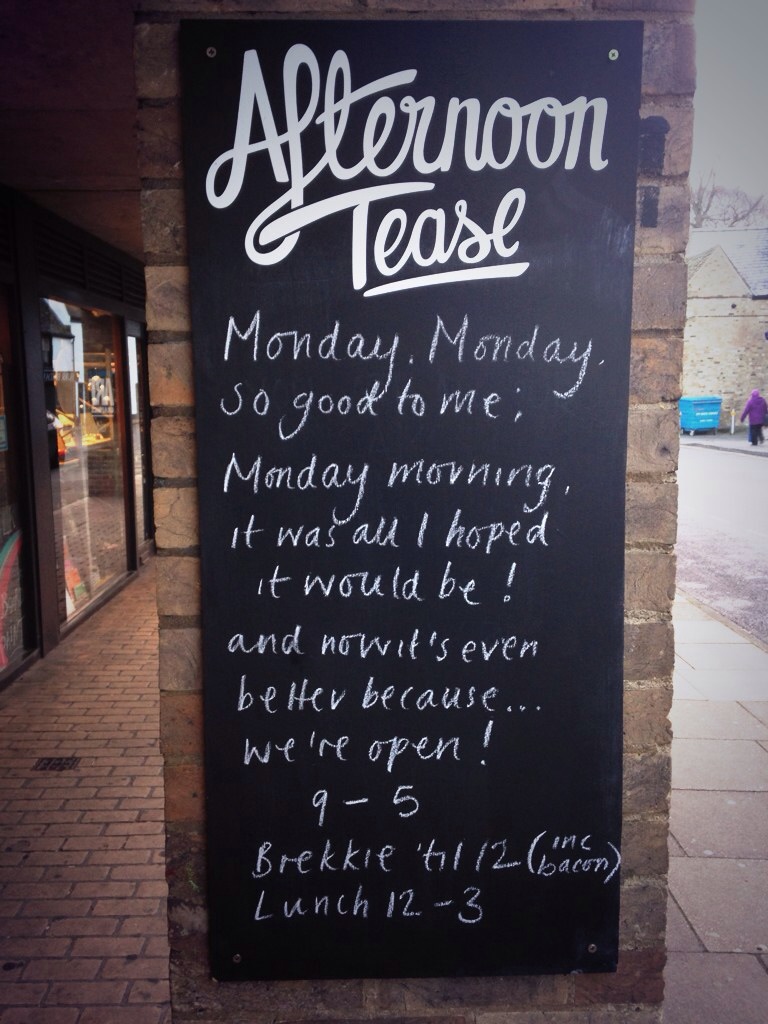 Afternoon
Tease
Monday, Monday,
so good to me;
Monday morning,
it was all I hoped
it would be!
and now it's even
better because...
we're open!
9 - 5
Brekkie 'til 12 (inc bacon)
Lunch 12 - 3